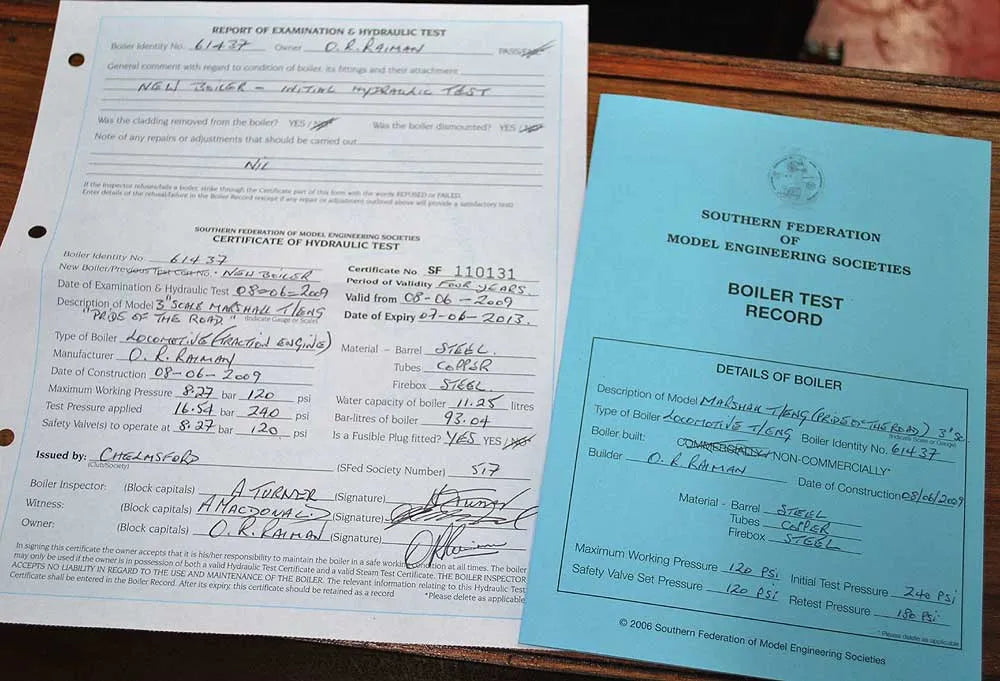 REPORT OF EXAMINATION & HYDRAULIC TEST
Boiler Identity No. 61437 Owner O.R. RAIMAN PASS/FAIL
General comment with regard to condition of boiler, its fittings and their attachment
NEW BOILER - INITIAL HYDRAULIC TEST
Was the cladding removed from the boiler? YES / NO* Was the boiler dismounted? YES / NO*
Note of any repairs or adjustments that should be carried out
NIL
If the Inspector refuses/fails a boiler, strike through the Certificate part of this form with the words REFUSED or FAILED.
Enter details of the refusal/failure in the Boiler Record (except if any repair or adjustment outlined above will provide a satisfactory test)
SOUTHERN FEDERATION OF MODEL ENGINEERING SOCIETIES
CERTIFICATE OF HYDRAULIC TEST
Boiler Identity No. 61437
New Boiler/Previous Test Cert No. NEW BOILER
Date of Examination & Hydraulic Test 08-06-2009
Description of Model 3" SCALE MARSHALL T/ENG
"PRIDE OF THE ROAD." (Indicate Gauge or Scale)
Type of Boiler LOCOMOTIVE (TRACTION ENGINE)
Manufacturer O.R. RAIMAN
Date of Construction 08-06-2009
Maximum Working Pressure 8.27 bar 120 psi
Test Pressure applied 16.54 bar 240 psi
Safety Valve(s) to operate at 8.27 bar 120 psi
Certificate No SF 110131
Period of Validity FOUR YEARS.
Valid from 08-06-2009
Date of Expiry 07-06-2013.
Material - Barrel STEEL.
Tubes COPPER
Firebox STEEL.
Water capacity of boiler 11.25 litres
Bar-litres of boiler 93.04
Is a Fusible Plug fitted? YES YES / NO*
Issued by: CHELMSFORD (SFed Society Number) 517
(Club/Society)
Boiler Inspector: (Block capitals) A TURNER (Signature)
Witness: (Block capitals) A MACDONALD (Signature)
Owner: (Block capitals) O.R. RAIMAN (Signature)
In signing this certificate the owner accepts that it is his/her responsibility to maintain the boiler in a safe working condition at all times. The boiler
may only be used if the owner is in possession of both a valid Hydraulic Test Certificate and a valid Steam Test Certificate. THE BOILER INSPECTOR
ACCEPTS NO LIABILITY IN REGARD TO THE USE AND MAINTENANCE OF THE BOILER. The relevant information relating to this Hydraulic Test
Certificate shall be entered in the Boiler Record. After its expiry, this certificate should be retained as a record *Please delete as applicable
SOUTHERN FEDERATION
OF
MODEL ENGINEERING SOCIETIES
BOILER TEST
RECORD
DETAILS OF BOILER
Description of Model MARSHALL T/ENG (PRIDE OF THE ROAD) 3" Sc
(Indicate Scale or Gauge)
Type of Boiler LOCOMOTIVE T/ENG Boiler Identity No. 61437
Boiler built: COMMERCIALLY / NON-COMMERCIALLY*
Builder O.R. RAIMAN Date of Construction 08/06/2009
Material - Barrel STEEL
Tubes COPPER
Firebox STEEL
Maximum Working Pressure 120 PSI Initial Test Pressure 240 PSI
Safety Valve Set Pressure 120 PSI Retest Pressure 180 PSI
* Please delete as applicable
© 2006 Southern Federation of Model Engineering Societies